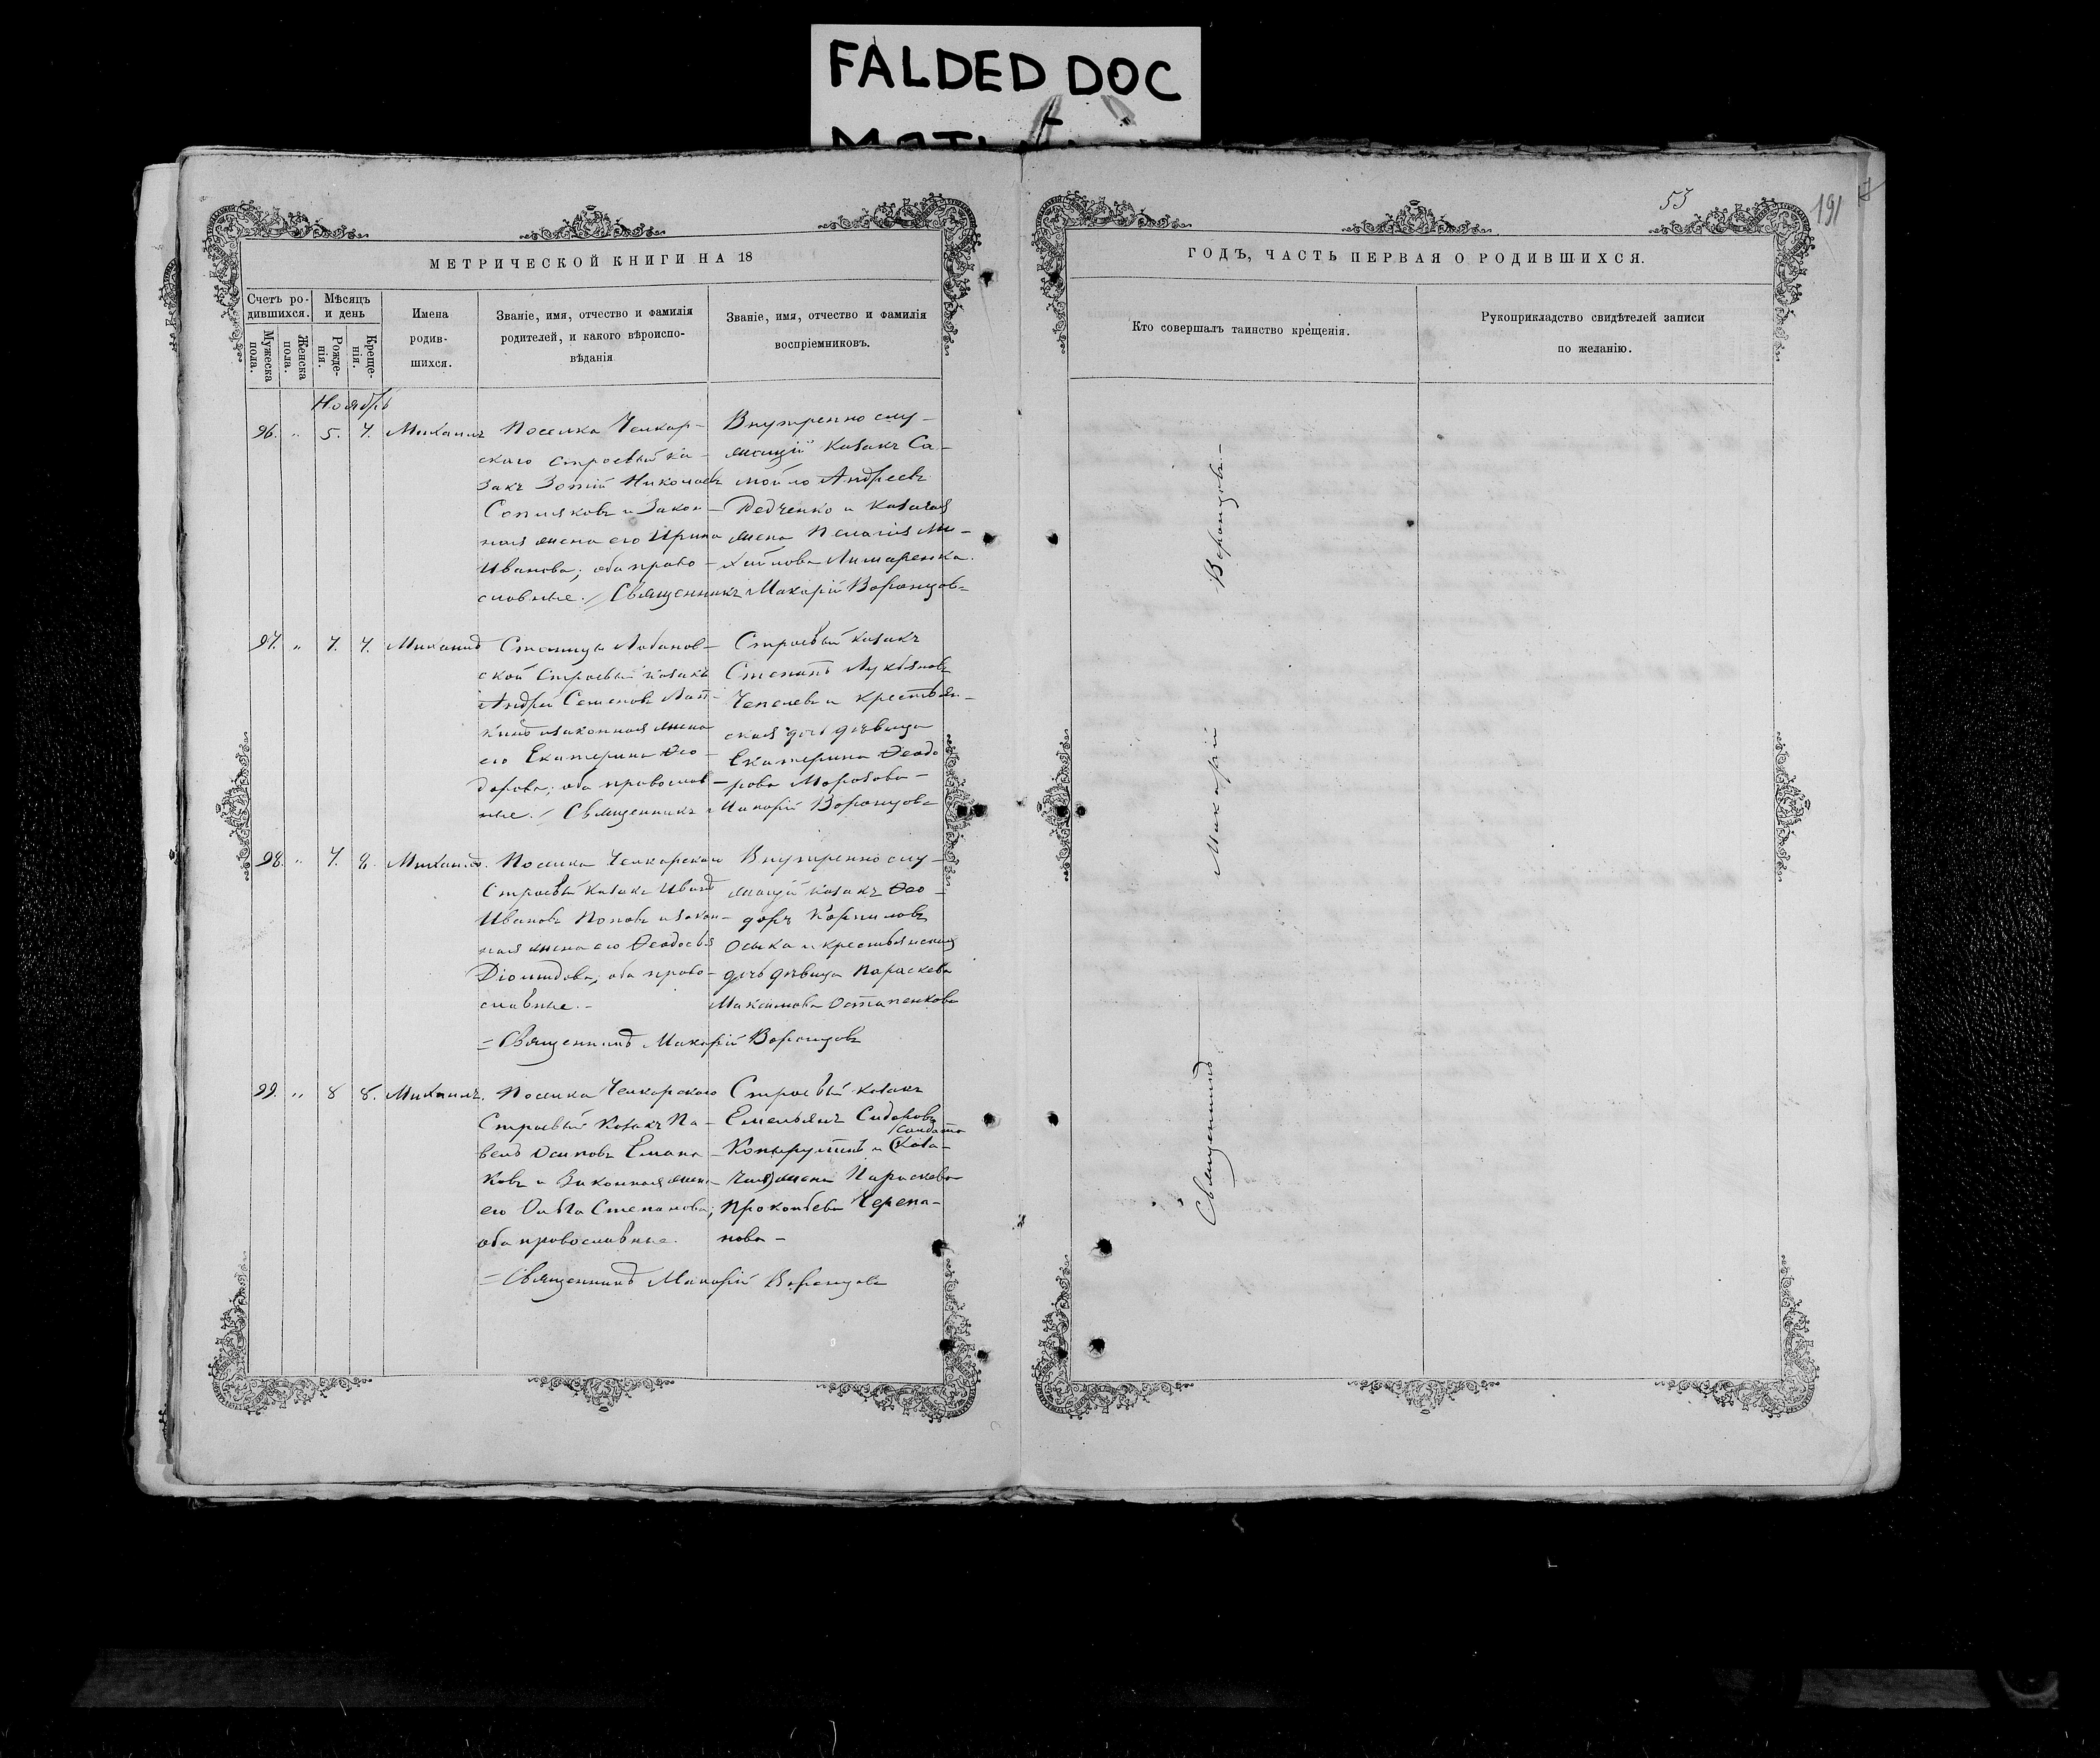 FALDED DOC
53
191
МЕТРИЧЕСКОЙ КНИГИ НА 18
Счетъ ро-
дившихся.
Мѣсяцъ
и день
Мужеска
пола.
Женска
пола.
Рожде-
нія.
Креще-
нія.
Имена
родив-
шихся.
Званіе, имя, отчество и фамилія
родителей, и какого вѣроиспо-
вѣданія
Званіе, имя, отчество и фамилія
воспріемниковъ.
Ноябрь
96. „ 5. 7. Михаилъ
Поселка Челкар-
скаго строевый ка-
закъ Зотій Николаевъ
Сопляковъ и Закон-
ная жена его Ирина
Иванова; оба право-
славные. // Священникъ Макарій Воронцовъ
Внутренно слу-
жащій Козакъ Са-
мойло Андреевъ
Дедченко и Казачья
жена Пелагія Ми-
хайлова Лимаренка.
97. „ 7. 7. Михаилъ
Станицы Лобанов-
ской Строевый козакъ
Андрей Семеновъ Лап-
кинъ и законная жена
его Екатерина Ѳео-
дорова; оба православ-
ные. / Священникъ Макарій Воронцовъ
Строевый козакъ
Степанъ Лукьяновъ
Чепелевъ и крестьян-
ская дочь дѣвица
Екатерина Ѳеодо
рова Морозова -
98. „ 7. 8. Михаилъ.
Поселка Челкарскаго
Строевый козакъ Иванъ
Ивановъ Поповъ и закон-
ная жена его Ѳеодосья
Діомидова, оба право-
славные. -
Внутренно слу-
жащій козакъ Ѳео-
доръ Корниловъ
Оська и крестьянская
дочь дѣвица Параскева
Максимова Остапенкова
= Священникъ Макарій Воронцовъ
99. „ 8 8. Михаилъ.
Поселка Челкарскаго
Строевый Козакъ Па-
велъ Осиповъ Елма
ковъ и Законная жена
его Ольга Степанова;
оба православные.
Строевый козакъ
Емельянъ Сидоровъ
и (Каза-
чья) жена Параскева
Прокопьева Черепа-
нова -
= Священникъ Макарій Воронцовъ
ГОДЪ, ЧАСТЬ ПЕРВАЯ О РОДИВШИХСЯ.
Кто совершалъ таинство крещенія.
Рукоприкладство свидѣтелей записи
по желанію.
Священникъ Макарій Воронцовъ -